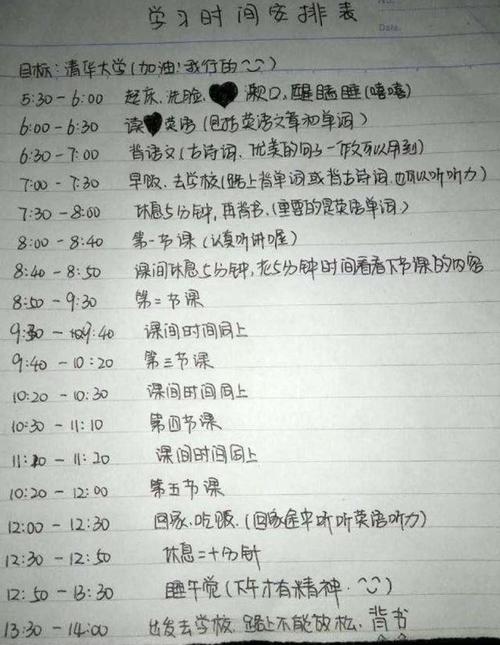 学习时间安排表
No.
Date.
目标：清华大学(加油！我行的)
5:30 - 6:00 起床、洗脸、漱口，醒瞌睡(嘻嘻)
6:00 - 6:30 读英语(包括英语文章和单词)
6:30 - 7:00 背语文(古诗词、优美的句子一作文可以用到)
7:00 - 7:30 早饭、去学校(路上背单词或背古诗词、也可以听听力)
7:30 - 8:00 休息5分钟，再背书、(重要的是英语单词)
8:00 - 8:40 第一节课(认真听讲喔)
8:40 - 8:50 课间休息5分钟，花5分钟时间看看下节课的内容
8:50 - 9:30 第二节课
9:30 - 9:40 课间时间同上
9:40 - 10:20 第三节课
10:20 - 10:30 课间时间同上
10:30 - 11:10 第四节课
11:10 - 11:20 课间时间同上
10:20 - 12:00 第五节课
12:00 - 12:30 回家、吃饭、(回家途中听听英语听力)
12:30 - 12:50 休息二十分钟
12:50 - 13:30 睡午觉(下午才有精神.)
13:30 - 14:00 出发去学校、路上不能放松、背书